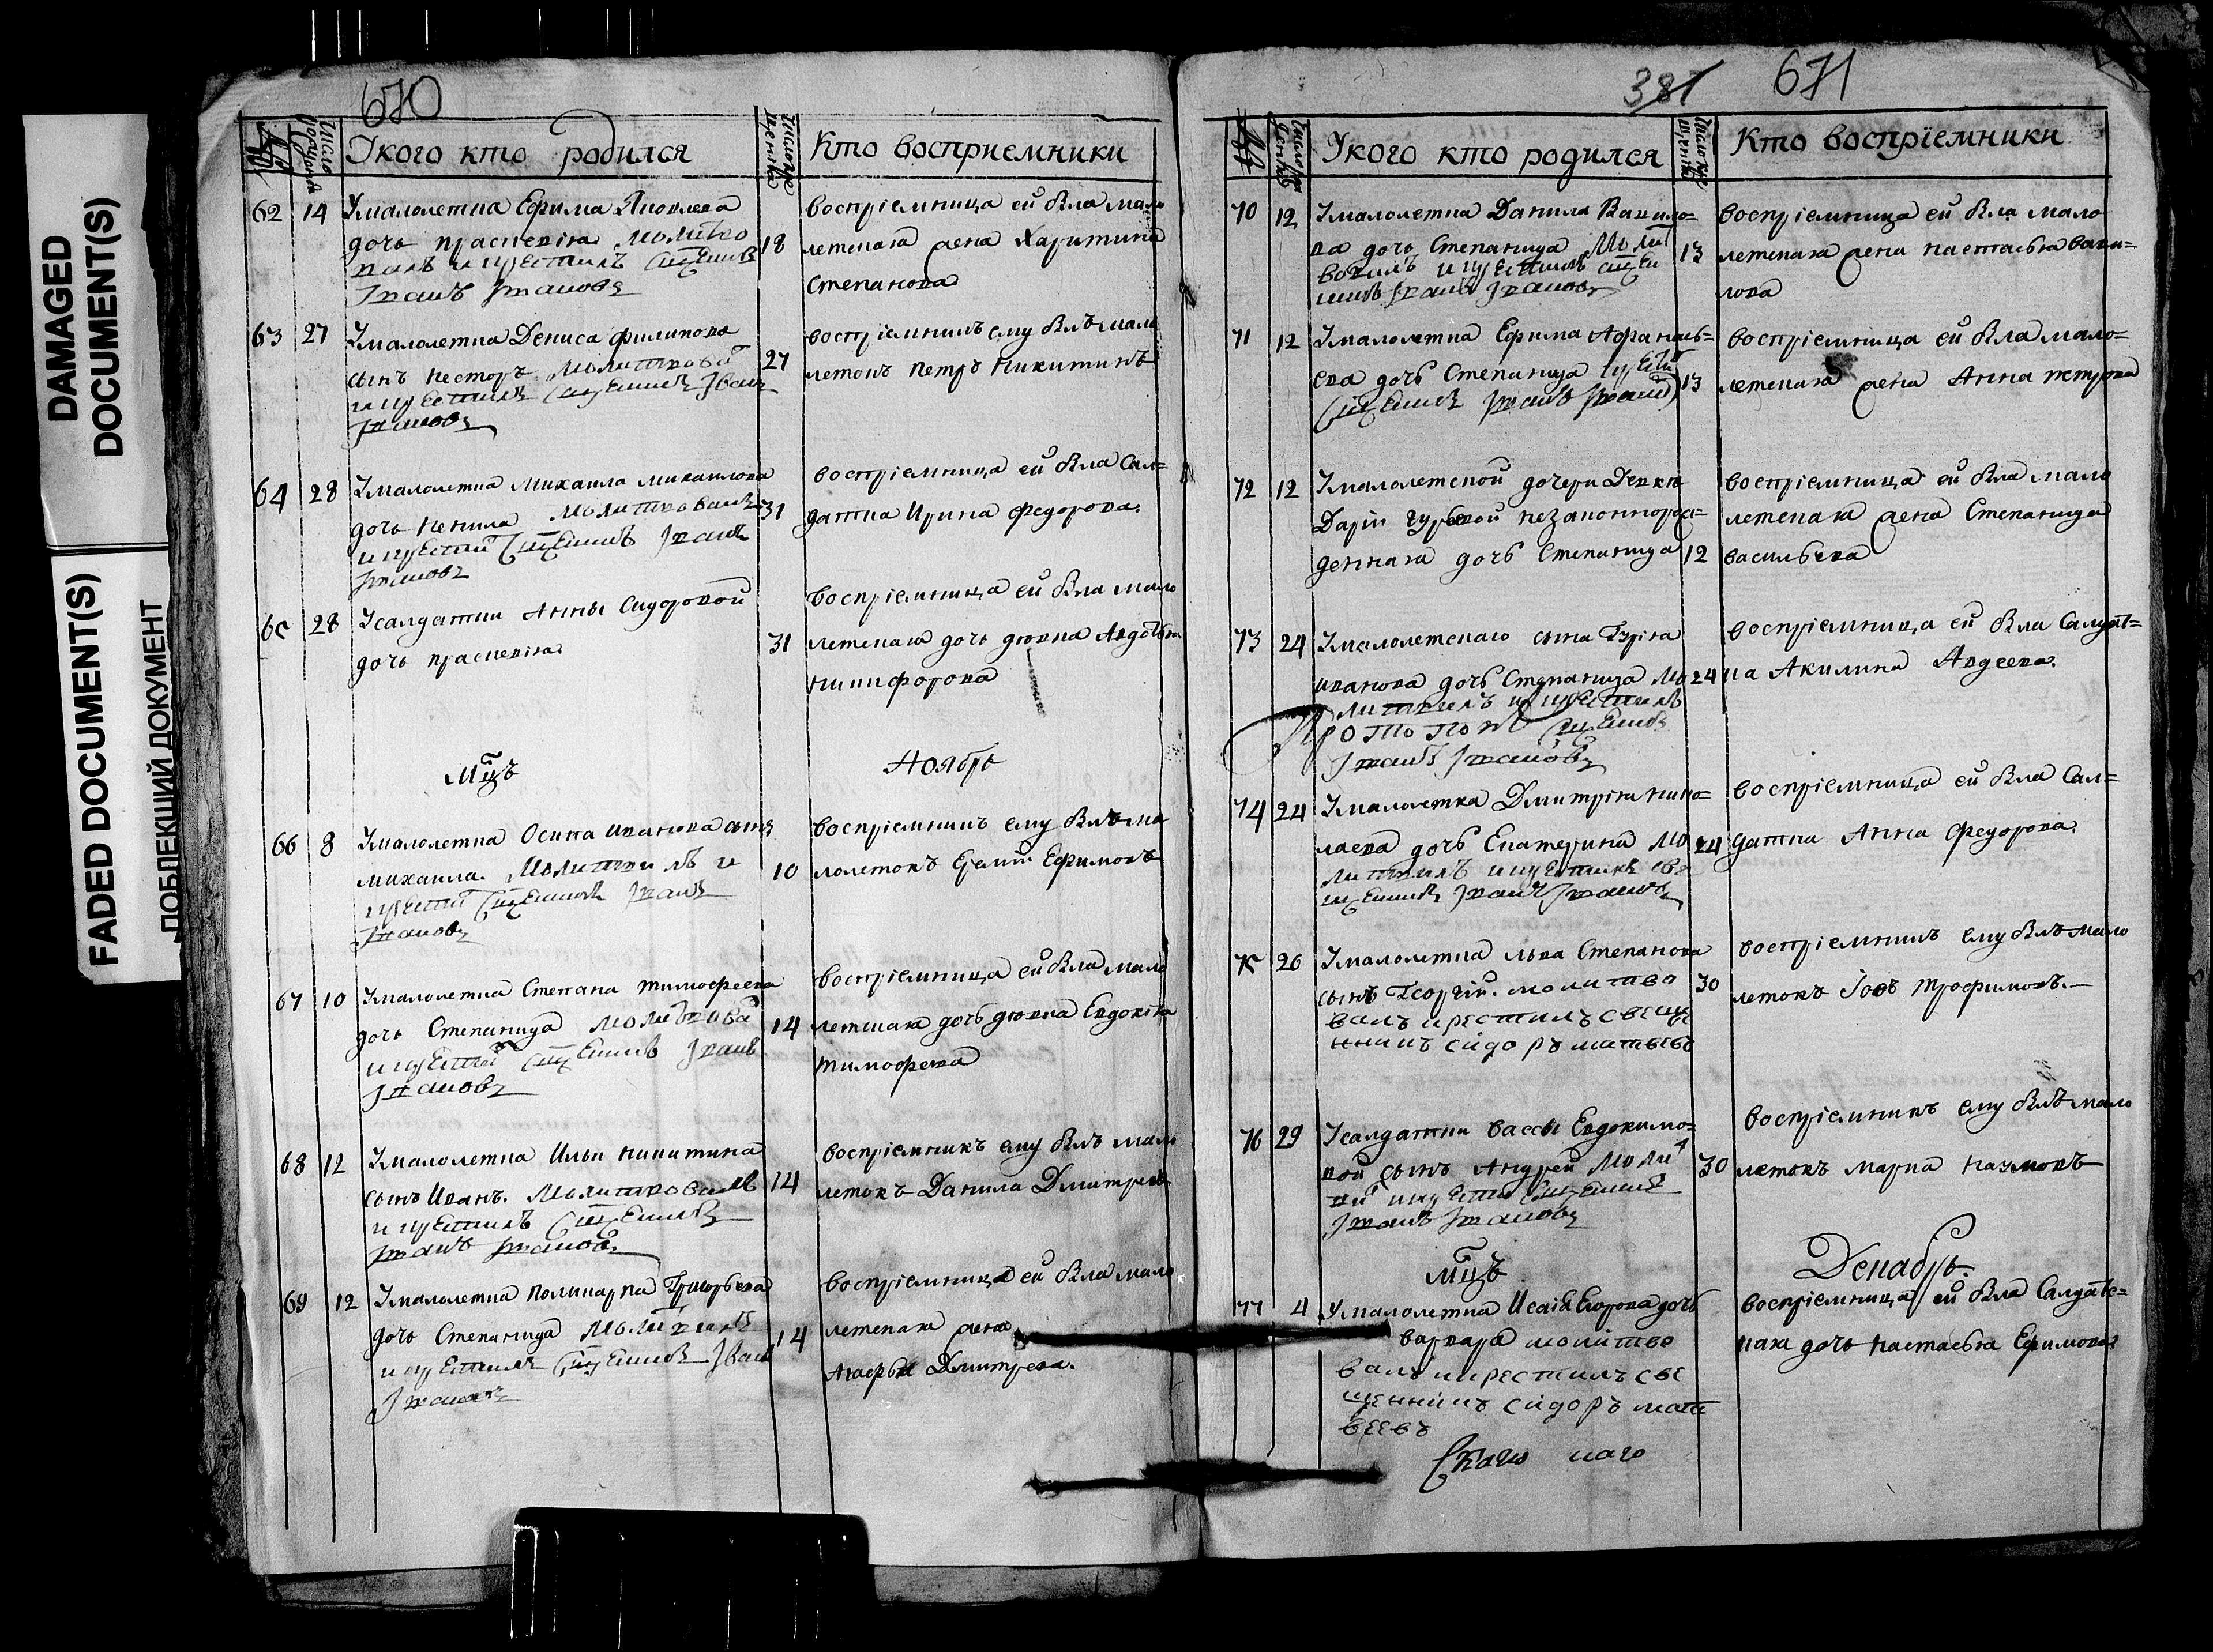 DAMAGED
DOCUMENT(S)
FADED DOCUMENT(S)
ПОБЛЕКШИЙ ДОКУМЕНТ
670
Укого кто родился
Кто восприемники
62 14 Умалолетка Ефима Яковлева
дочь праскевія молитво
валъ и крестилъ сщенникъ
Іванъ Івановъ
18
воспріемница ей бла мало
летскаѧ жена Харитина
Степанова
63 27 Умалолетка Дениса филипова
сынъ несторъ молитвова
и крестилъ сщенникъ Іванъ
Івановъ
27
воспріемникъ ему блъ мало
летокъ петръ никитинъ
64 28 Умалолетка михаила михаилова
дочь ненила молитвовалъ
и крестил сщенникъ Іванъ
Івановъ
31
воспріемница ей бла сал=
датка Ирина федорова.
65 28 Усалдатки Анны Сидоровой
дочь праскевіѧ
31
воспріемница ей бла мало
летскаѧ дочь девка Авдотьѧ
никифорова
Мцъ
Ноябрь
66 8 Умалолетка Осипа иванова сынъ
михаила. Молитвилъ и
крестил сщенникъ Іванъ
Івановъ
10
воспріемникъ ему блъ ма
лолетокъ Ефимовъ
67 10 Умалолетка Степана тимофеева
дочь Степанида молитвова
и крестил сщенникъ Іванъ
Івановъ
14
воспріемница ей бла мало
летскаѧ дочь девка Евдокіѧ
тимофева
68 12 Умалолетка Ильи никитина
сынъ Иванъ. Молитвовалъ
и крестилъ сщенникъ
Іванъ Івановъ
14
воспріемникъ ему блъ мало
летокъ Данила Дмитревъ
69 12 Умалолетка поликарпа Григорьева
дочь Степанида
и крестилъ сщенникъ Іванъ
Івановъ
14
воспріемница ей бла мало
летскаѧ жена
Агафьѧ Дмитрева.
381 671
Укого кто родился
Кто воспрїемники
70 12 Умалолетка Данила Вавило=
ва дочь Степанида моли
вовилъ и крестилъ сщен
никъ Іванъ Івановъ
13
воспріемница ей бла мало
летскаѧ жена настасьѧ вави=
лова
71 12 Умалолетка Ефима Афанась=
ева дочь Степанида
сщенникъ Іванъ Іванов
13
воспріемница ей бла мало=
летскаѧ жена Анна петрова
72 12 Умалолетской дочери Девки
Дарїи гурьевой незаконнорож=
деннаѧ дочь Степанида
12
воспріемница ей бла мало
летскаѧ жена Степанида
васильева
73 24 Умалолетскаго сына Гурїѧ
иванова дочь Степанида мо
литвилъ и крестилъ
протопопъ сщеникъ
Іванъ Івановъ
24
воспріемница ей бла Салдат=
ка Акилина Авдеева.
74 24 Умалолетка Дмитріѧ нико=
лаева дочь Екатерина мо
литвилъ и крестилъ свя
щенникъ Іванъ Івановъ
24
воспріемница ей бла Сал=
датка Анна федорова
75 26 Умалолетка льва Степанова
сынъ Георгїй. молитво
валъ и рестилъ свеще
нникъ сидоръ матвѣевъ
30
воспріемникъ ему блъ мало
летокъ Іовъ трофимовъ.—
76 29 Усалдатки вассы Евдокимо=
вой сынъ Андрей моли
сщенникъ
Іванъ Івановъ
30
воспріемникъ ему блъ мало
летокъ марка наумовъ
мцъ
Декабрь.
77 4 Умалолетка Исаіѧ Егорова дочь
варвара молитво
валъ и крестилъ све
щенникъ сидоръ мат
веевъ
воспріемница ей бла Салдатс=
каѧ дочь настасьѧ Ефимова